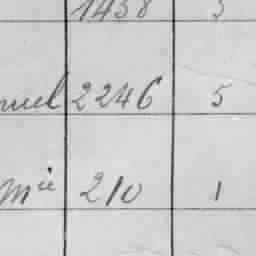 1438 5
nuel 2246 5
mie 210 1